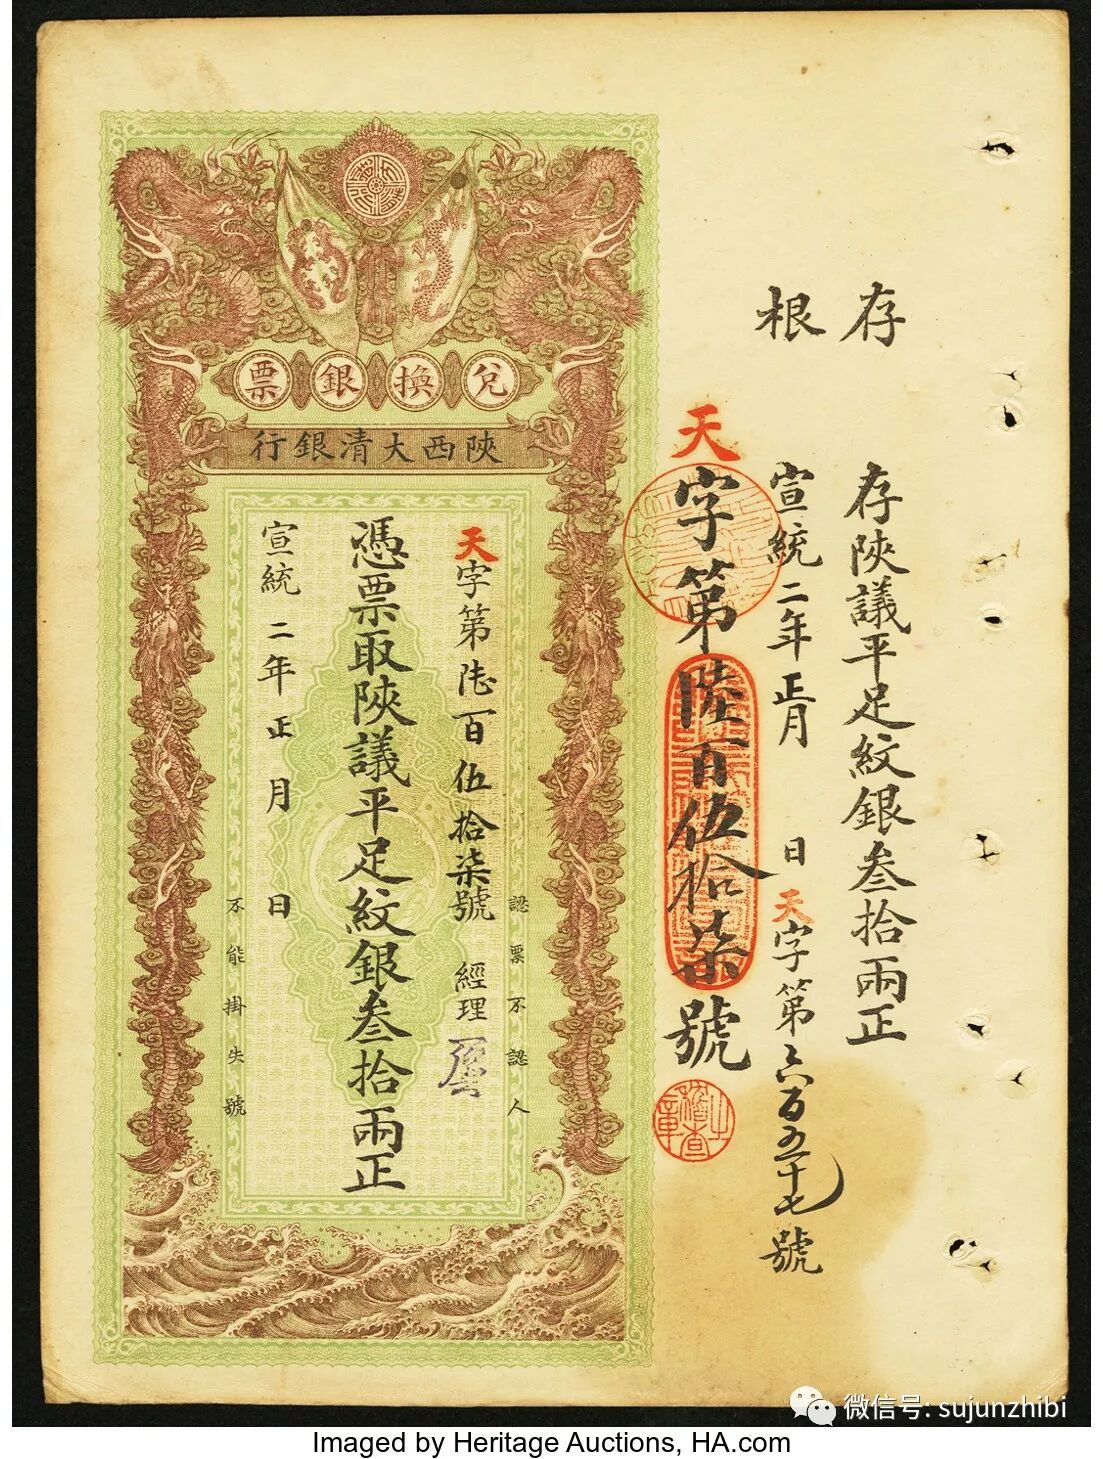 存根
存陝議平足紋銀叁拾兩正
宣統二年正月 日
天字第六百五十七號
天字第陸百伍拾柒號
稽查之章
兌換銀票
陝西大清銀行
認票不認人
天字第陸百伍拾柒號 經理
憑票取陝議平足紋銀叁拾兩正
宣統二年正月 日
不能掛失號
微信号: sujunzhibi
Imaged by Heritage Auctions, HA.com